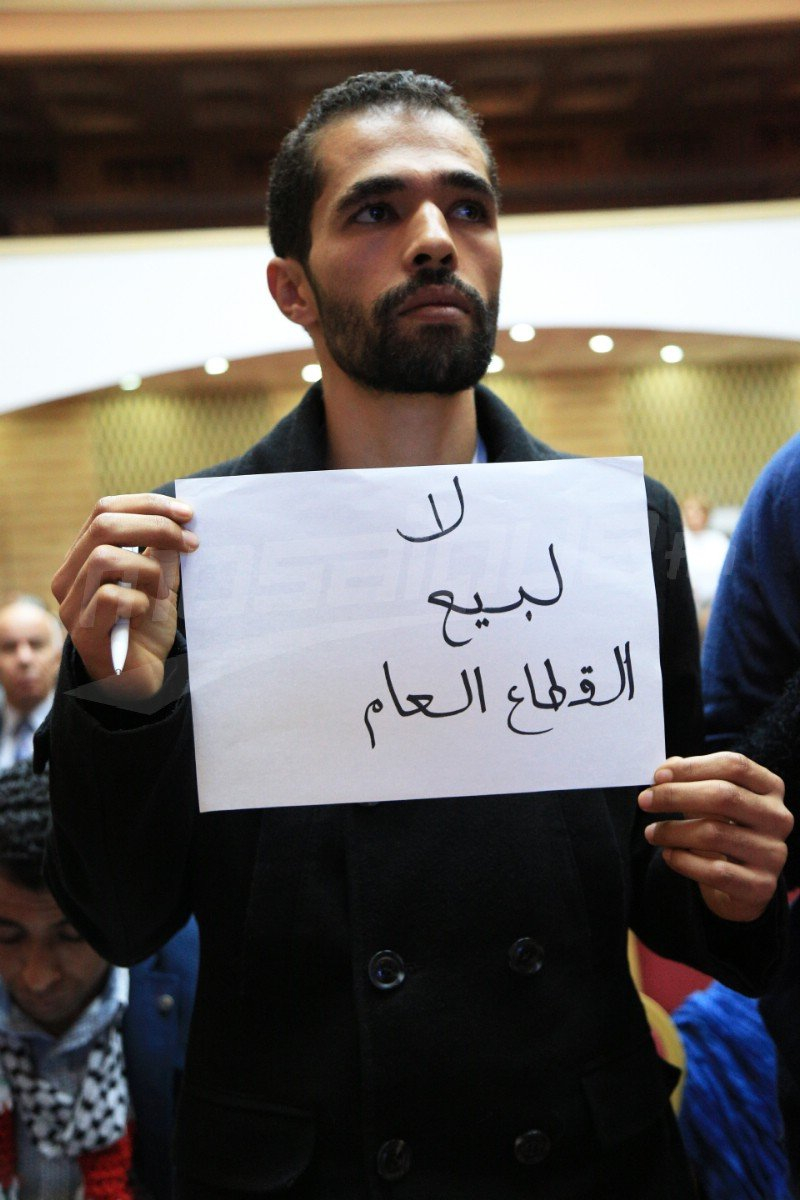 لا
لبيع
القطاع العام